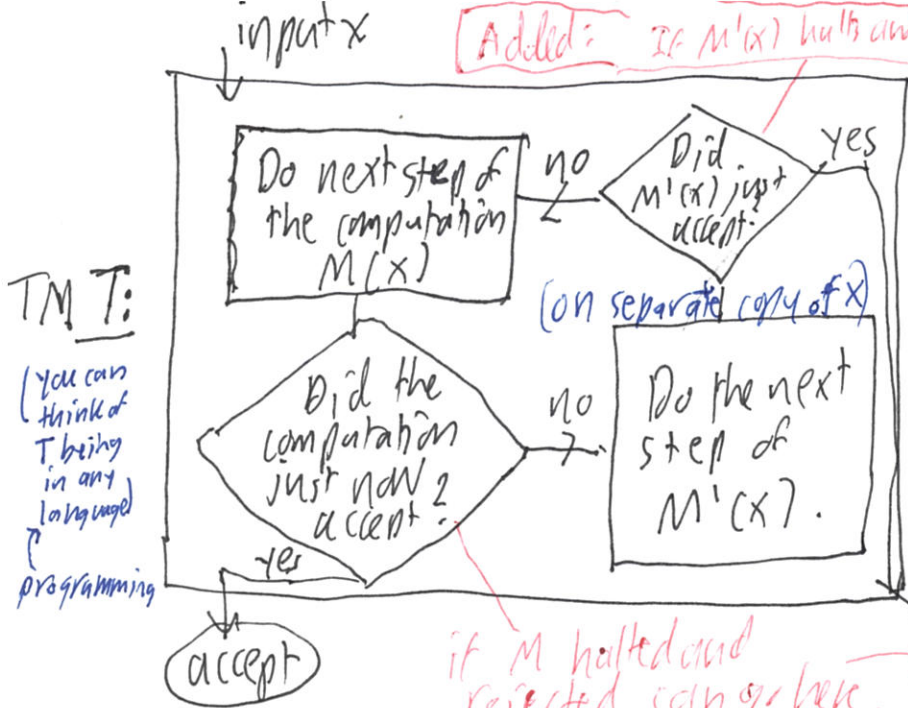 input x
Added: If M'(x) halts and
Do next step of
the computation
M(x)
no
Did
M'(x) just
accept?
yes
TM T:
(you can
think of
T being
in any
language)
programming
(on separate copy of x)
Did the
computation
just now
accept?
no
Do the next
step of
M'(x).
yes
accept
if M halted and
rejected can go here.